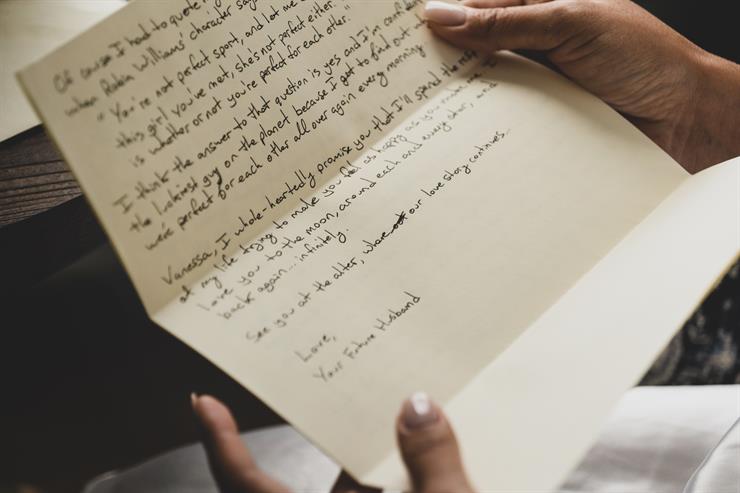 Of course I had to quote
when Robin Williams' character says
"You're not perfect sport, and let me
this girl you've met, she's not perfect either.
is whether or not you're perfect for each other."
I think the answer to that question is yes and I'm confident
the luckiest guy on the planet because I get to find out
we're perfect for each other all over again every morning
Vanessa, I whole-heartedly promise you that I'll spend the rest
of my life trying to make you feel as happy as you make me. I
love you to the moon, around each and every star, and
back again... infinitely.
See you at the alter, where our love story continues...
Love,
Your Future Husband